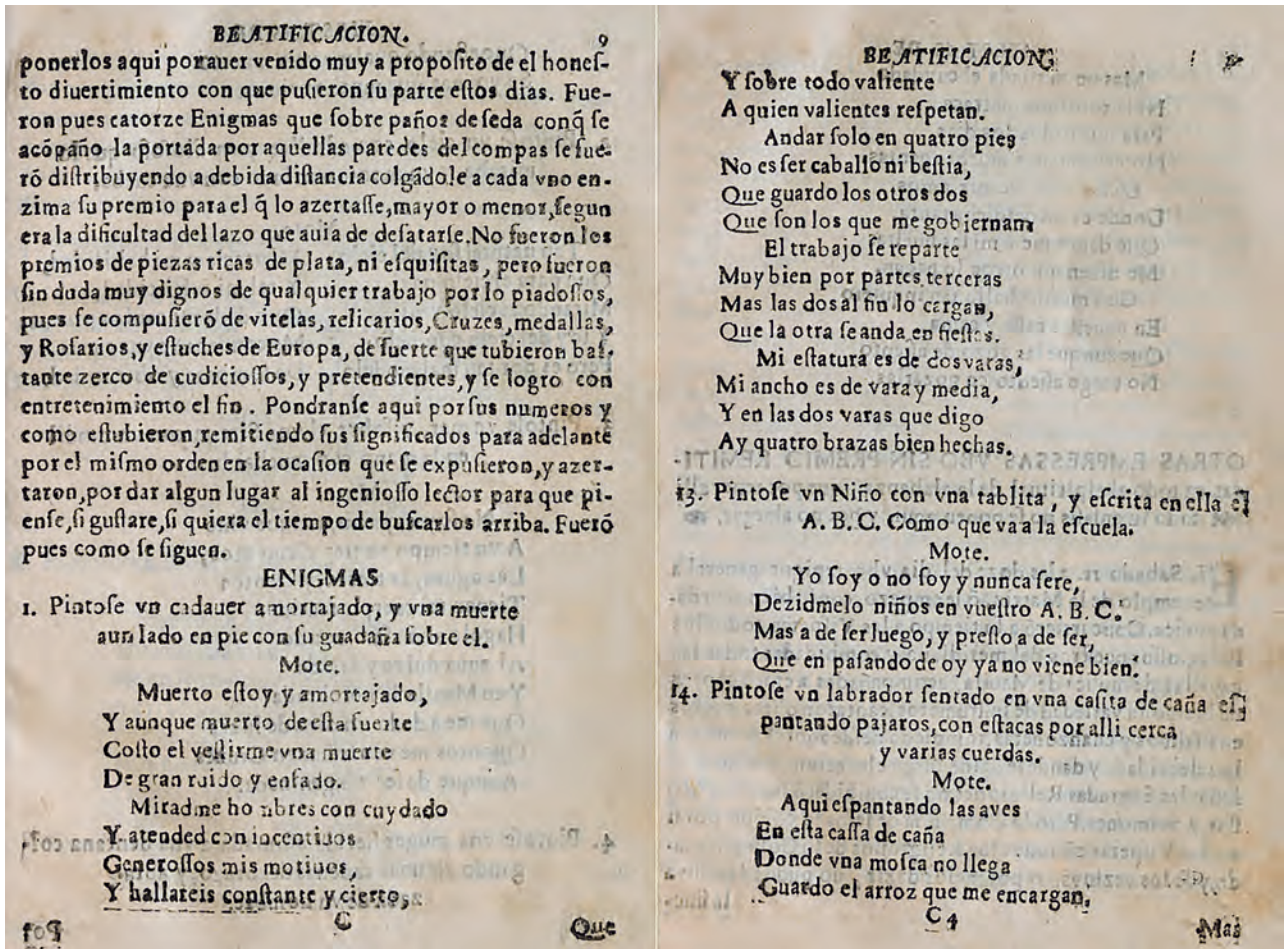 BEATIFICACION. 9
ponerlos aqui por auer venido muy a proposito de el hones-
to diuertimiento con que pusieron su parte estos dias. Fue-
ron pues catorze Enigmas que sobre paños de seda conq̃ se
acõpãño la portada por aquellas paredes del compas se fue-
rõ distribuyendo a debida distancia colgãdole a cada vno en-
zima su premio para el q̃ lo azertasse, mayor o menor, segun
era la dificultad del lazo que auia de desatarse. No fueron los
premios de piezas ricas de plata, ni esquisitas, pero fueron
sin duda muy dignos de qualquier trabajo por lo piadossos,
pues se compusierõ de vitelas, relicarios, Cruzes, medallas,
y Rosarios, y estuches de Europa, de suerte que tubieron bas-
tante zerco de cudiciossos, y pretendientes, y se logro con
entretenimiento el fin. Pondranse aqui por sus numeros y
como estubieron, remitiendo sus significados para adelante
por el mismo orden en la ocasion que se expusieron, y azer-
taron, por dar algun lugar al ingeniosso lector para que pi-
ense, si gustare, si quiera el tiempo de buscarlos arriba. Fuerõ
pues como se siguen.
ENIGMAS
1. Pintose vn cadauer amortajado, y vna muerte
a un lado en pie con su guadaña sobre el.
Mote.
Muerto estoy y amortajado,
Y aunque muerto de esta suerte
Costo el vestirme vna muerte
De gran ruido y enfado.
Miradme hombres con cuydado
Y atended con incentiuos
Generossos mis motiuos,
Y hallareis constante y cierto,
C Que
BEATIFICACION,
Y sobre todo valiente
A quien valientes respetan.
Andar solo en quatro pies
No es ser caballo ni bestia,
Que guardo los otros dos
Que son los que me gobiernan.
El trabajo se reparte
Muy bien por partes terceras
Mas las dos al fin lo cargan,
Que la otra se anda en fiestas.
Mi estatura es de dos varas,
Mi ancho es de vara y media,
Y en las dos varas que digo
Ay quatro brazas bien hechas.
13. Pintose vn Niño con vna tablita, y escrita en ella el
A. B. C. Como que va a la escuela.
Mote.
Yo soy o no soy y nunca sere,
Dezidmelo niños en vuestro A. B. C.
Mas a de ser luego, y presto a de ser,
Que en pasando de oy ya no viene bien.
14. Pintose vn labrador sentado en vna casita de caña es-
pantando pajaros, con estacas por alli cerca
y varias cuerdas.
Mote.
Aqui espantando las aves
En esta cassa de caña
Donde vna mosca no llega
Guardo el arroz que me encargan,
C 4 Mas